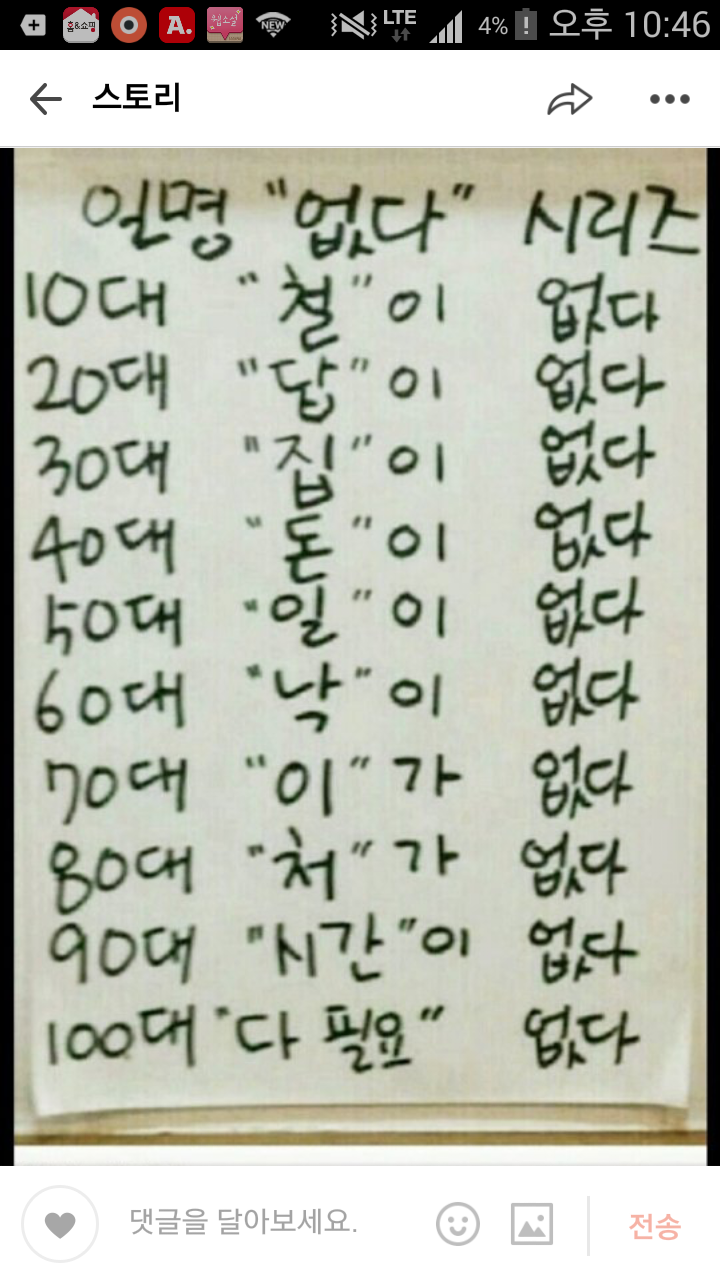 홈&쇼핑 A. 웹소설 NEW LTE 4% 오후 10:46
스토리
일명 "없다" 시리즈
10대 "철"이 없다
20대 "답"이 없다
30대 "집"이 없다
40대 "돈"이 없다
50대 "일"이 없다
60대 "낙"이 없다
70대 "이"가 없다
80대 "처"가 없다
90대 "시간"이 없다
100대 "다 필요" 없다
댓글을 달아보세요. 전송